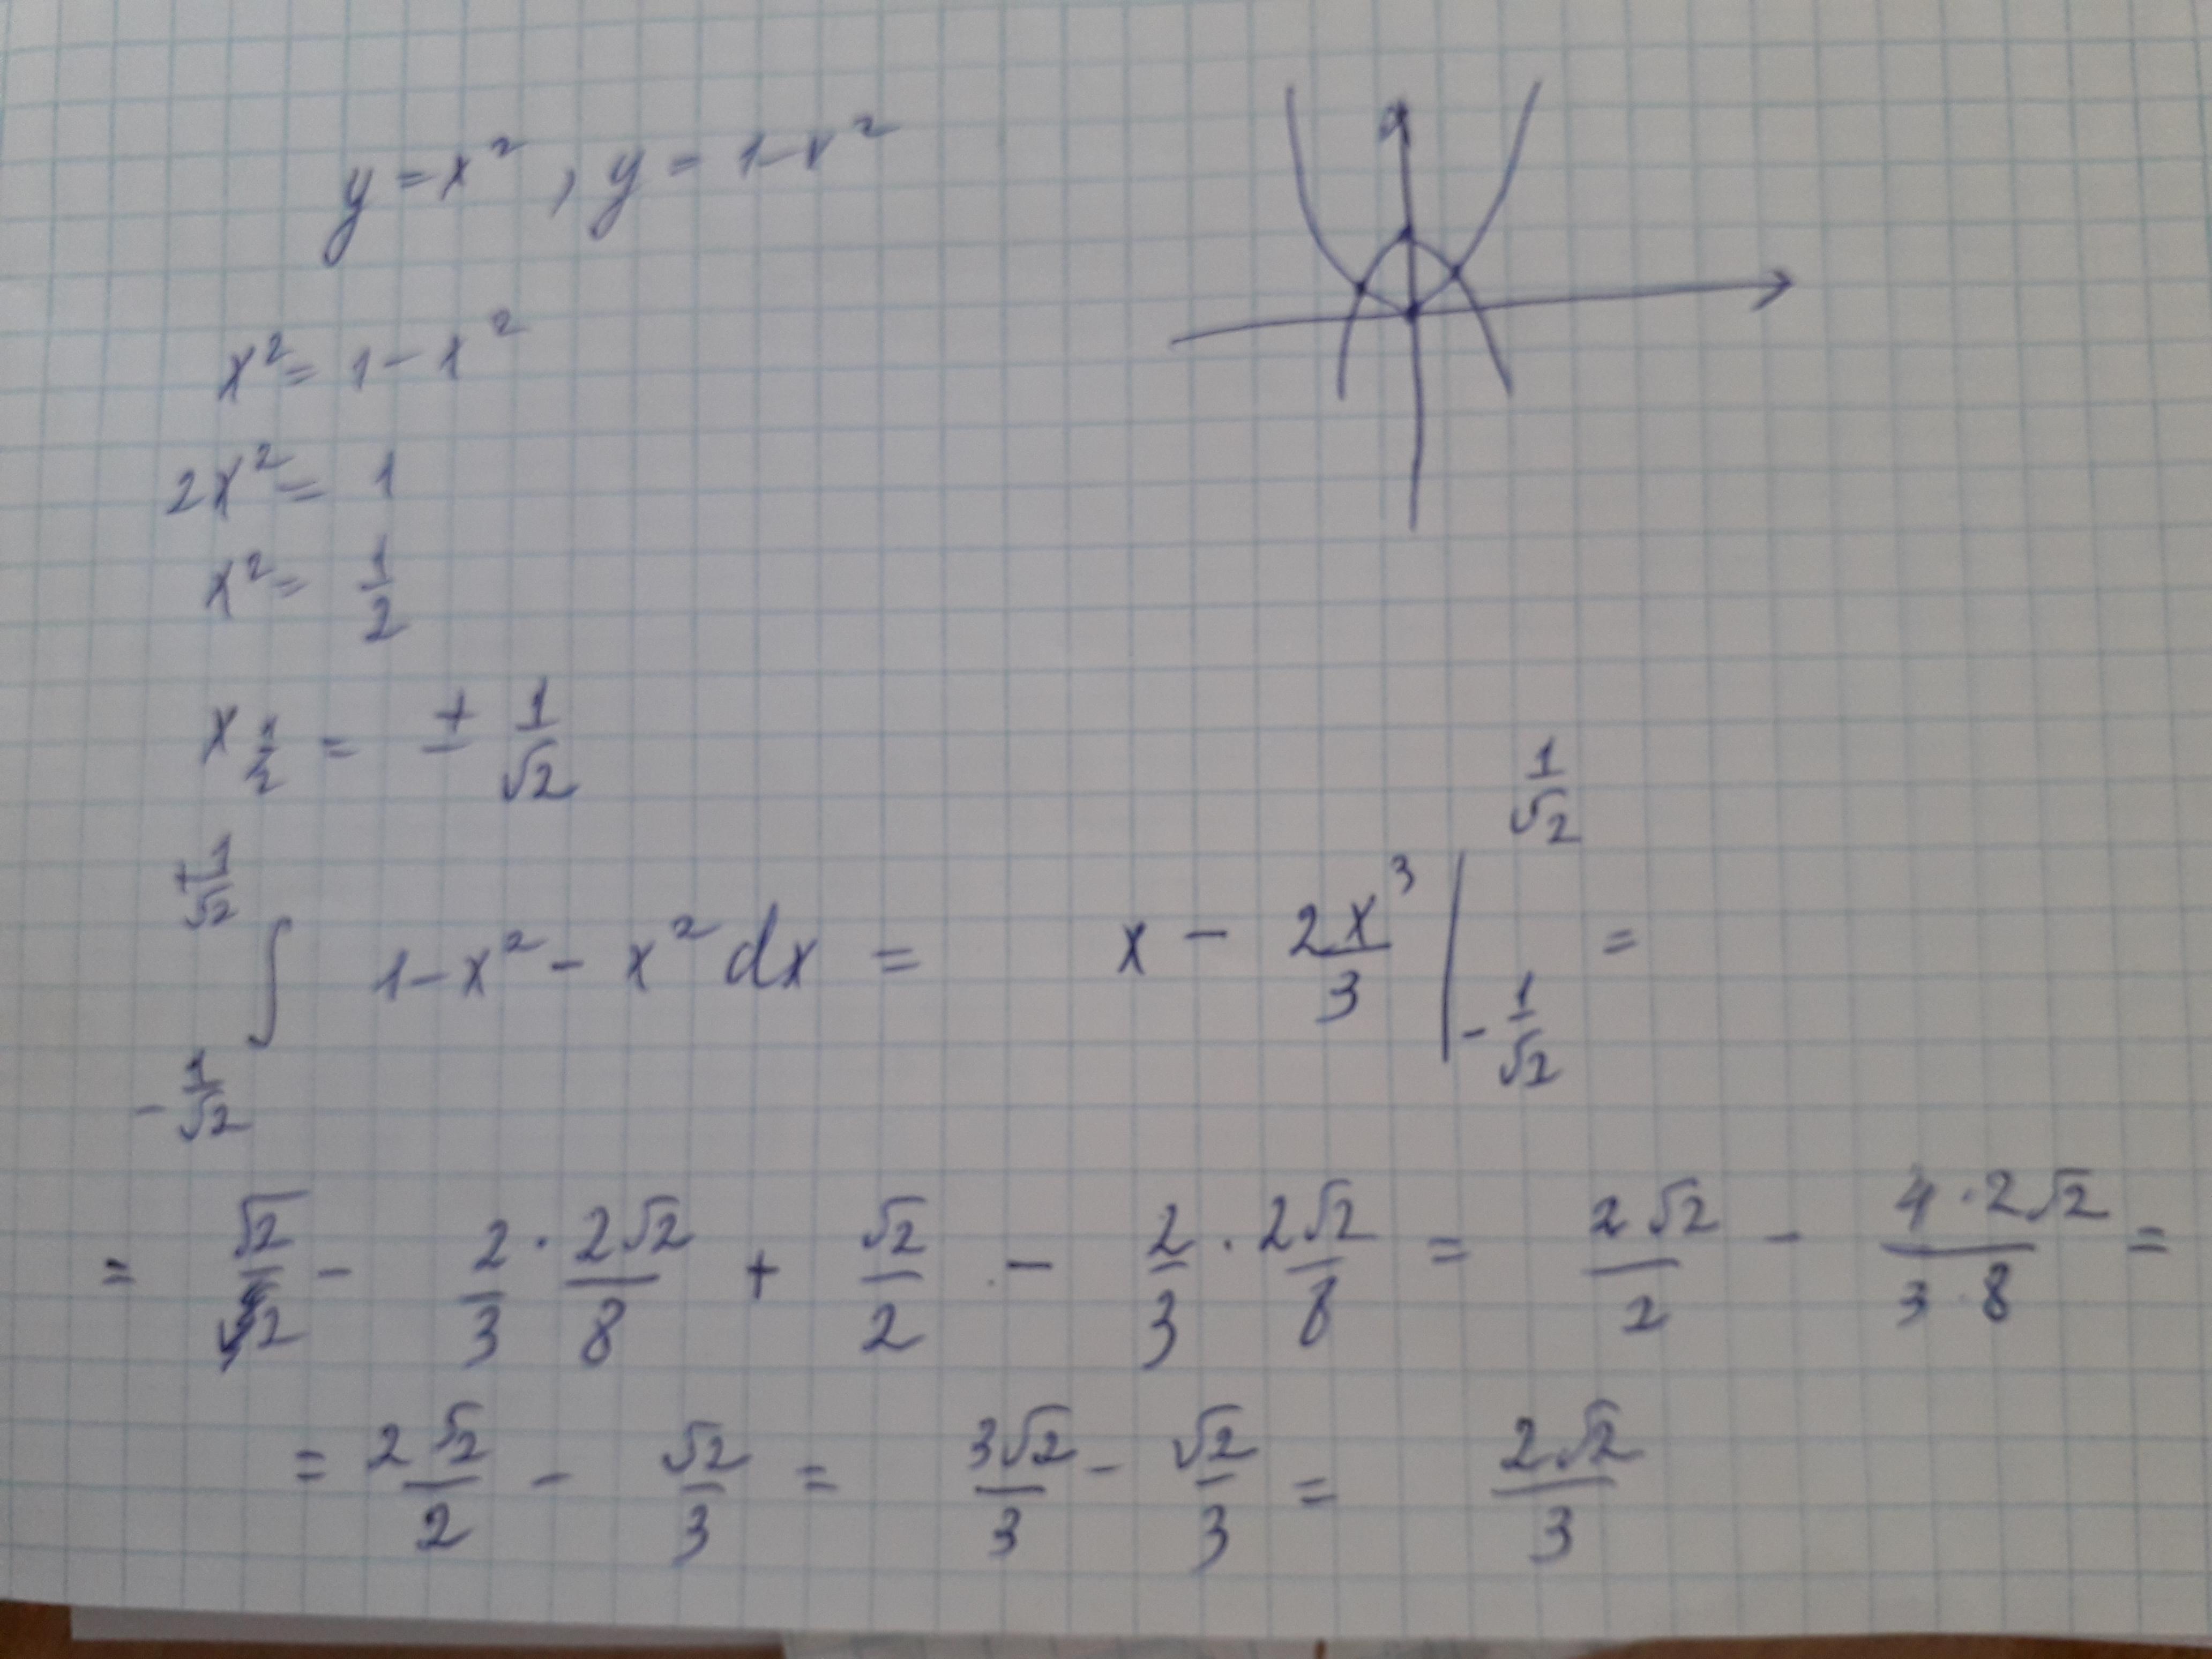 y = x², y = 1-x²
x² = 1 - x²
2x² = 1
x² = 1/2
x₁,₂ = ± 1/√2
∫_{-1/√2}^{+1/√2} 1-x²-x² dx = x - 2x³/3 |_{-1/√2}^{1/√2} =
= √2/2 - 2/3 · 2√2/8 + √2/2 - 2/3 · 2√2/8 = 2√2/2 - 4·2√2/3·8 =
= 2√2/2 - √2/3 = 3√2/3 - √2/3 = 2√2/3